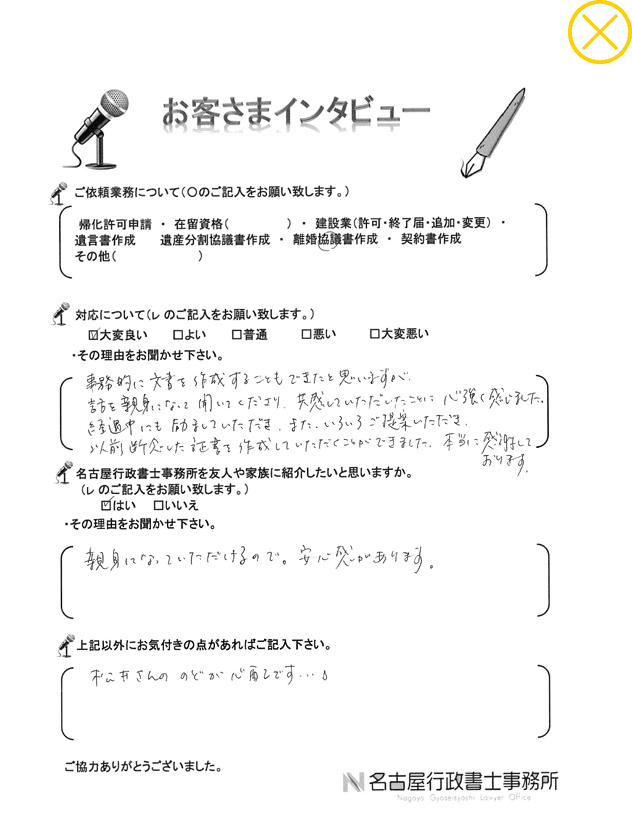 お客さまインタビュー
ご依頼業務について(〇のご記入をお願い致します。)
帰化許可申請 ・ 在留資格( ) ・ 建設業(許可・終了届・追加・変更) ・
遺言書作成 遺産分割協議書作成 ・ 離婚協議書作成 ・ 契約書作成
その他( )
対応について(レ のご記入をお願い致します。)
☑大変良い □よい □普通 □悪い □大変悪い
・その理由をお聞かせ下さい。
事務的に文書を作成することもできたと思いますが、
話を親身になって聞いてくださり、共感していただいたことに心強く感じました。
経過中にも励ましていただき、また、いろいろご提案いただき、
以前断念した証書を作成していただくことができました。本当に感謝して
おります。
名古屋行政書士事務所を友人や家族に紹介したいと思いますか。
(レ のご記入をお願い致します。)
☑はい □いいえ
・その理由をお聞かせ下さい。
親身になっていただけるので。安心感があります。
上記以外にお気付きの点があればご記入下さい。
松井さんの のどが心配です…♪
ご協力ありがとうございました。
名古屋行政書士事務所
Nagoya Gyoseisyoshi Lawyer Office